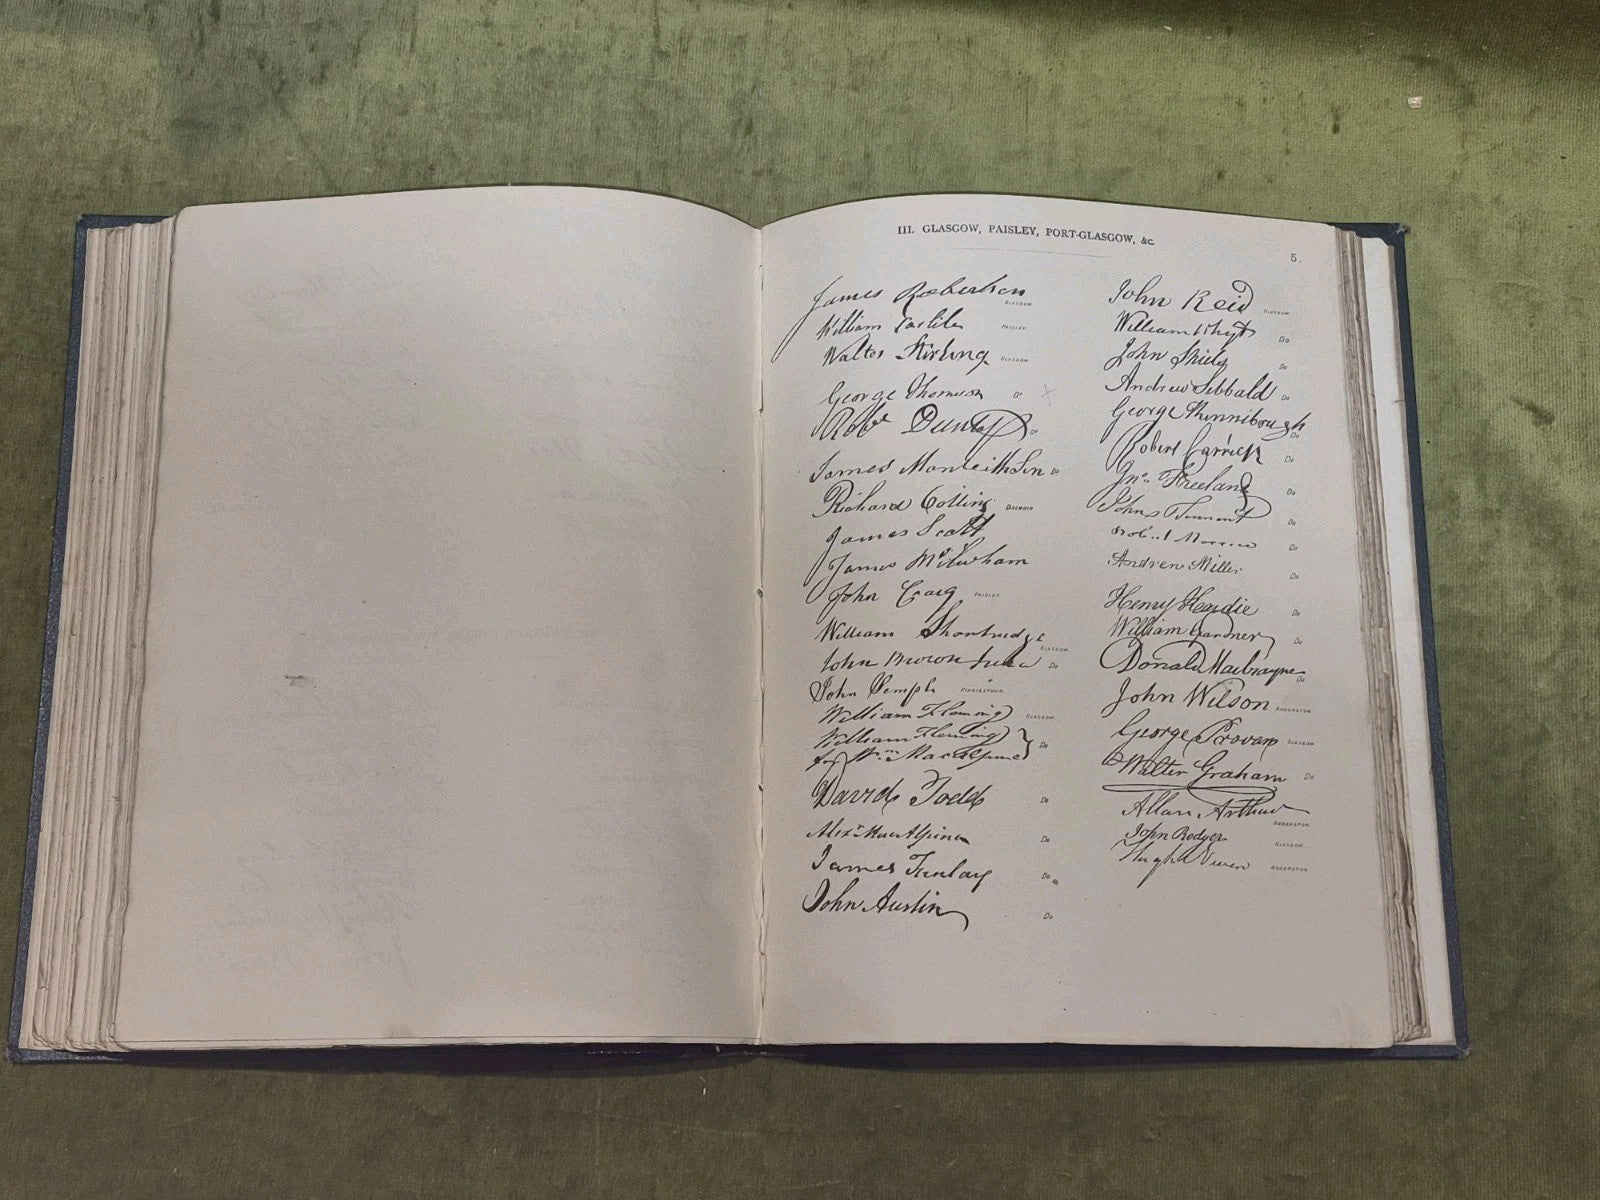 III. GLASGOW, PAISLEY, PORT-GLASGOW, &c.
5.
James Robertson GLASGOW
William Carlile PAISLEY
Walter Stirling GLASGOW
George Thomson Do
Robt Dunlop Do
James Monteith Sen Do
Richard Collins DALMUIR
James Scott
James McIlwham
John Craig PAISLEY
William Shortridge GLASGOW
John Brown Do
John Semple FINNIESTOUN
William Fleming GLASGOW
William Fleming
for Wm MacAlpine Do
David Todd Do
Alexr MacAlpine Do
James Finlay Do
John Austin Do
John Reid GLASGOW
William Whyt Do
John Do
Andrew Sibbald Do
George Do
Robert Carrick Do
Jno. Freeland Do
John Tennent Do
Robert Do
Andrew Miller Do
Henry Hardie Do
William Gardner Do
Donald Macbrayne Do
John Wilson ANDERSTON
George Provan GLASGOW
Walter Graham Do
Allan Arthur ANDERSTON
John Rodger GLASGOW
Hugh Niven ANDERSTON